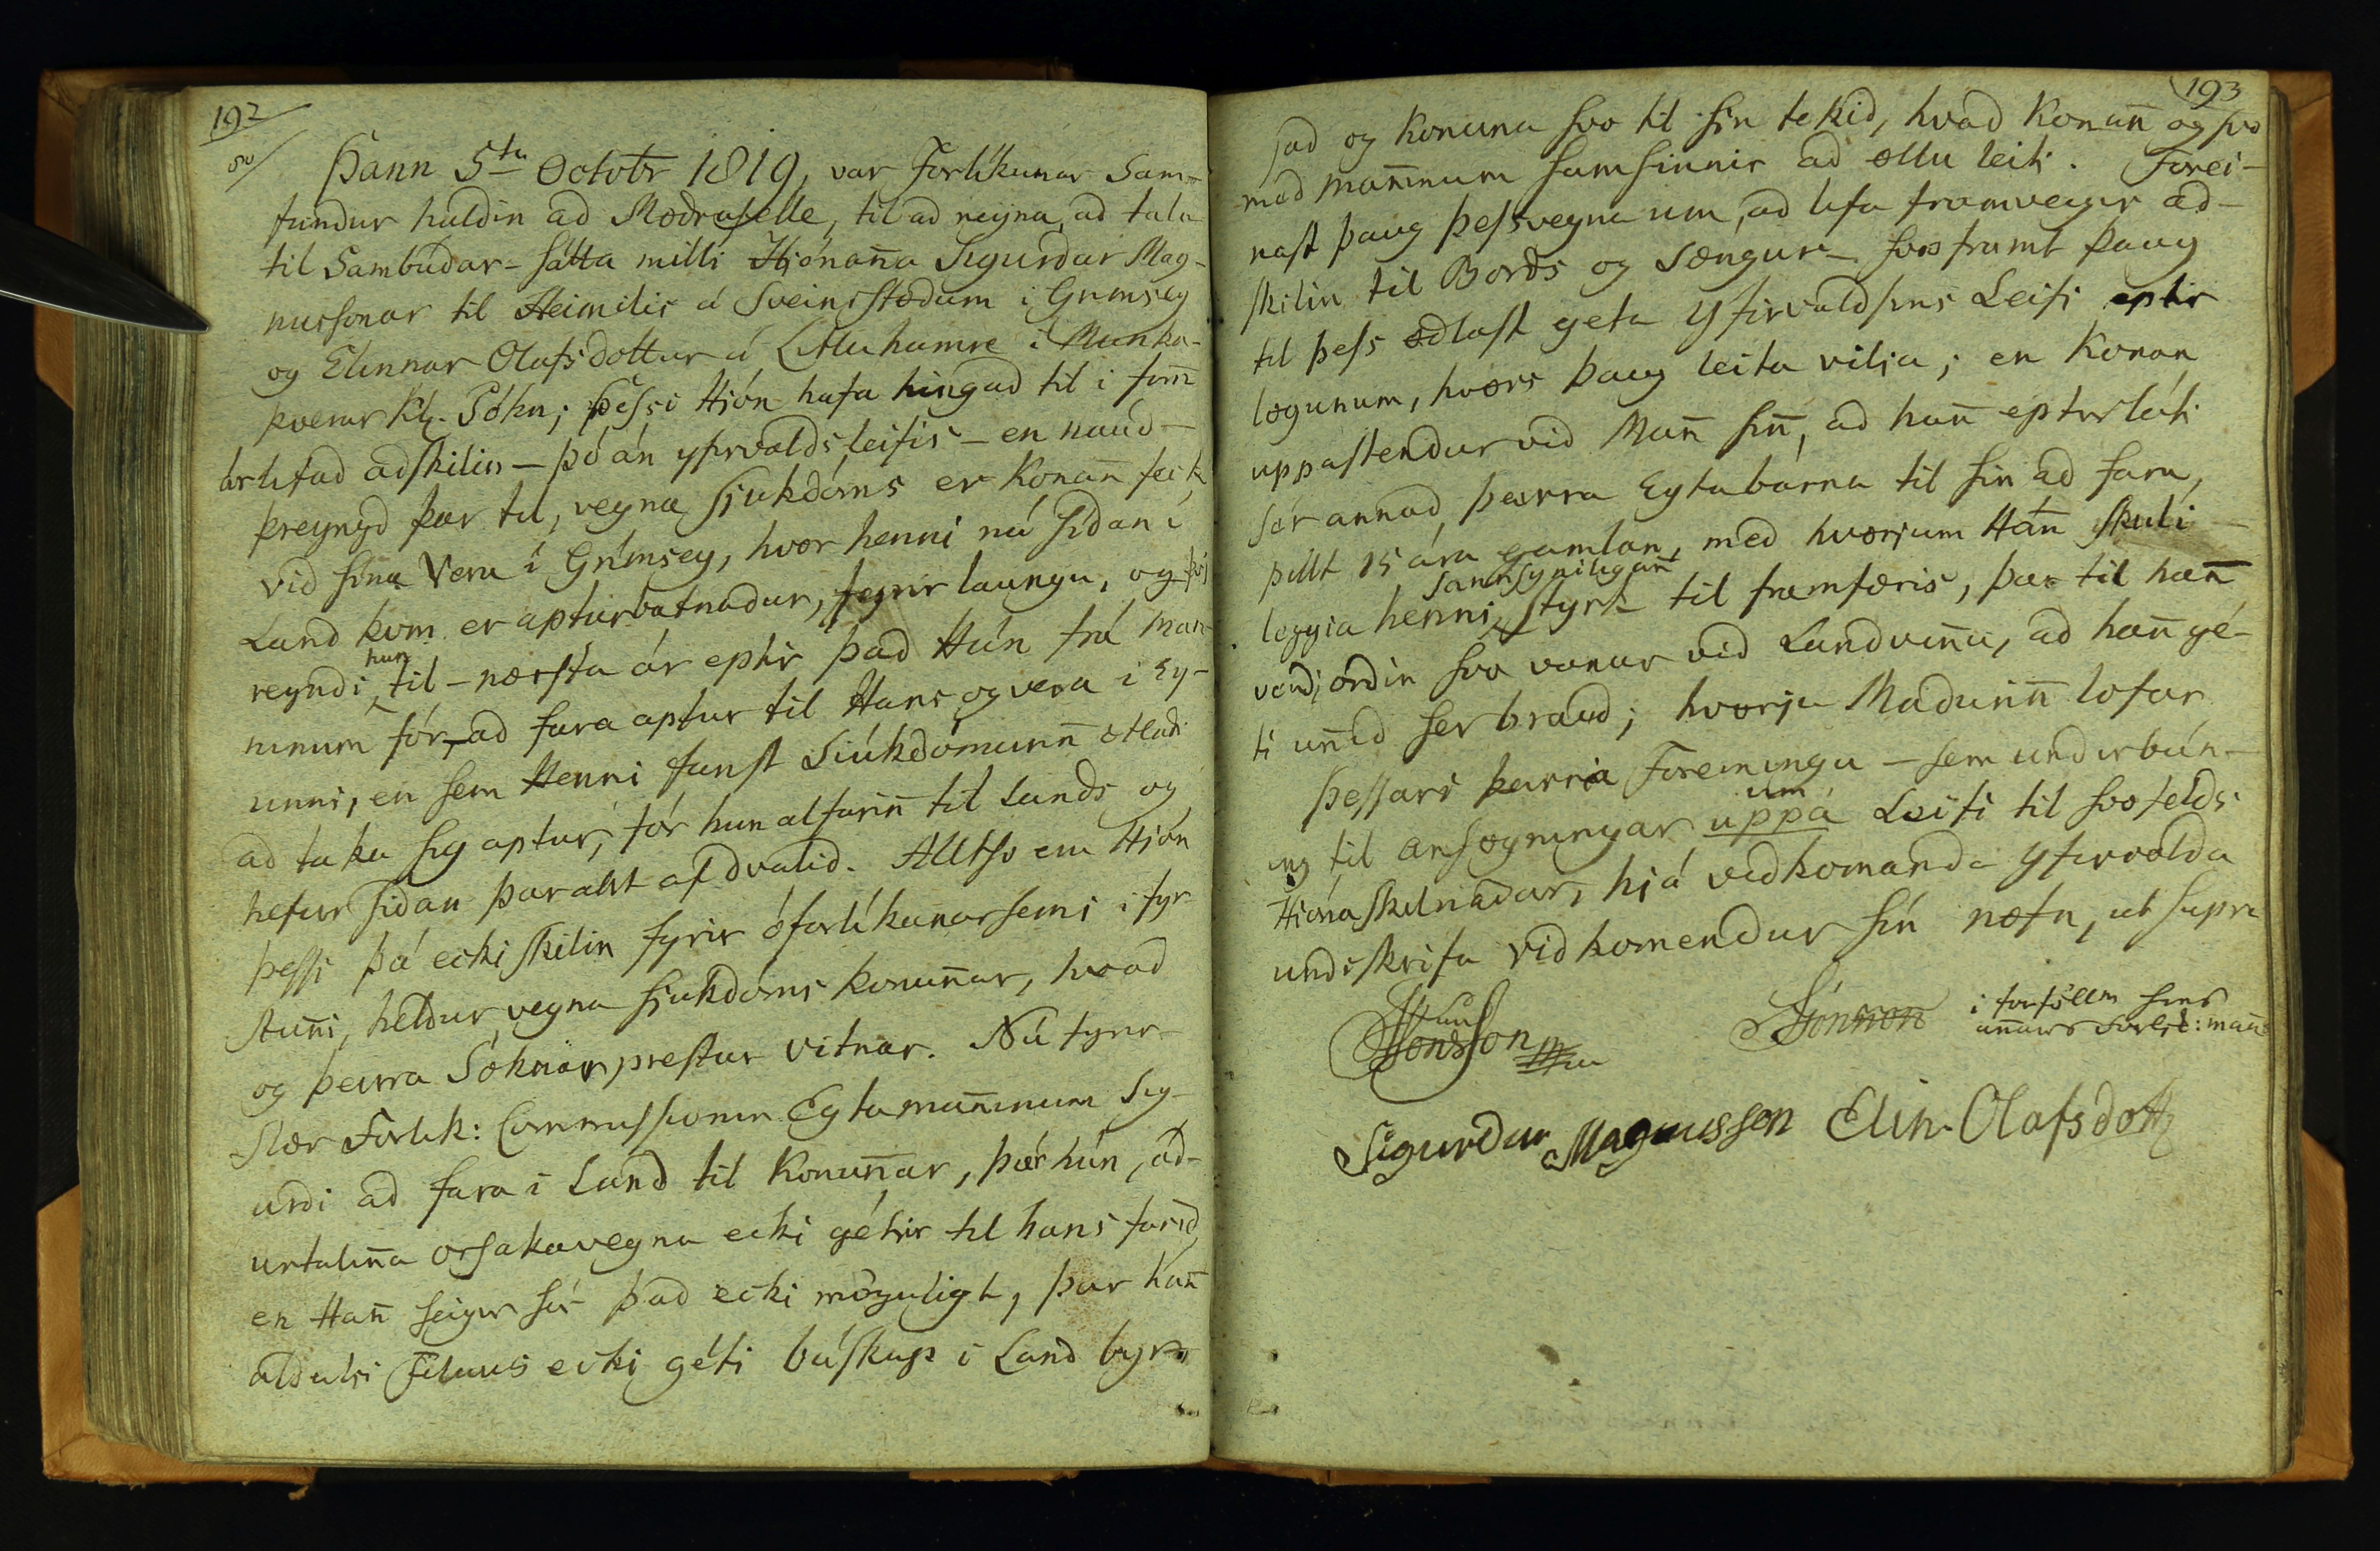 192
Þann 5ta Octobr 1819, var Forlíkunar Sam-
fundur haldin ad Mødrufelle, til ad reyna ad tala
til Sambúdar-sátta milli Hjónan̄a Sigurdar Mag-
nussonar til Heimilis á Sveinsstødum i Grimsey
og Elinnar Olafsdottur á Litluhamre i Munka-
kverar Kl. Sókn; þessi Hjón hafa hingad til i fim̄
ár lifad adskilin – þó án yfirvalds leifis – en naud-
þreyngd þar til, vegna sjúkdóms er konan̄ feck
vid sina Veru i Grímsey, hvør henni nú sidan i
Land kom er apturbatnadur, fyrir laungu, og því
reyndi hun til – næsta ár eptir þad Hún frá man-
ninum fór, – ad fara aptur til Hans og vera i Ey-
unni, en sem Henni fanst Siúkdómurin̄ ætladi
ad taka sig aptur, fór hun alfarin̄ til Lands og
hefur sidan þar altt af dvalid. Alltso eru Hjón
þessi þá ecki skilin fyrir óforlíkunarsemi i fyr-
stun̄i, heldur vegna sjúkdóms konun̄ar, hvad
og þeirra Sóknar prestur vitnar. Nú fyrir-
slær Forlik: Commissionin Egtaman̄inum Sig-
urdi ad fara i Land til Konun̄ar, þar hún, ad-
urtalin̄a orsakavegna ecki getur til hans farid
en Han̄ seigir sér þad ecki møguligt, þar han̄
aldeilis Felaus ecki géti búskap i Land byr-
193
jad og konuna svo til sin tekid, hvad konan̄ og svo
med man̄inum samsinnir ad øllu leiti. Forei-
nast þaug þessvegna um, ad lifa framvegis ad-
skilin til Bords og Sængur – svoframt þaug
til þess ødlast geta Yfirvaldsins Leifi eptir
løgunum, hvørs þaug leita vilja; en Konan
uppástendur vid Man̄ sin̄, ad han̄ epterláti
sér annad þeirra Egtabarna til sin ad fara,
pillt 15 ára gamlan, med hvørjum Han̄ skuli
leggia henni sannsynilegan̄ styrk til framfæris, þar til han̄
verdi ordin svo vanur vid Landvin̄u, ad han̄ gé-
ti un̄id ser braud; hvørju Madurin̄ lofar
Þessari þeirra Foreiningu – sem undirbún-
ing til ansøgningar um uppá Leifi til svofelds
Hjónaskilnadar, hjá vidkomanda Yfirvalda
undiskrifa vidkomendur sín nøfn, ut supra
Jonsson
SJónsson i forføllum hins
annars Forlík: man̄s
Sigurdur Magnusson Elin Olafsdottr